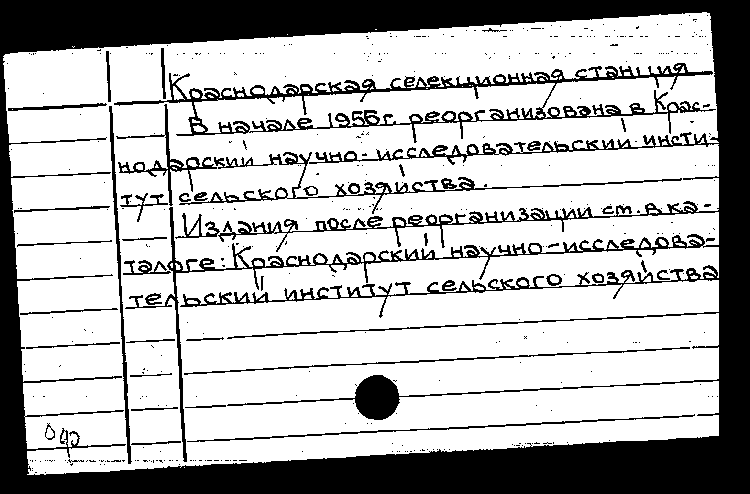 Краснодарская селекционная станция
В начале 1956г. реорганизована в Крас-
нодарский научно-исследовательский инсти-
тут сельского хозяйства.
Издания после реорганизации см. в ка-
талоге: Краснодарский научно-исследова-
тельский институт сельского хозяйства